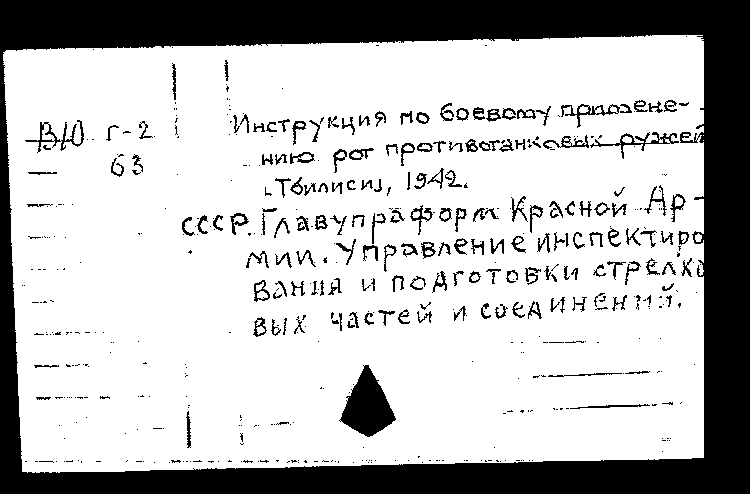 В/Ю Г-2
63
Инструкция по боевому примене-
нию рот противотанковых ружей
. Тбилиси, 1942.
СССР. Главупраформ Красной Ар-
мии. Управление инспектиро
вания и подготовки стрелко
вых частей и соединений.